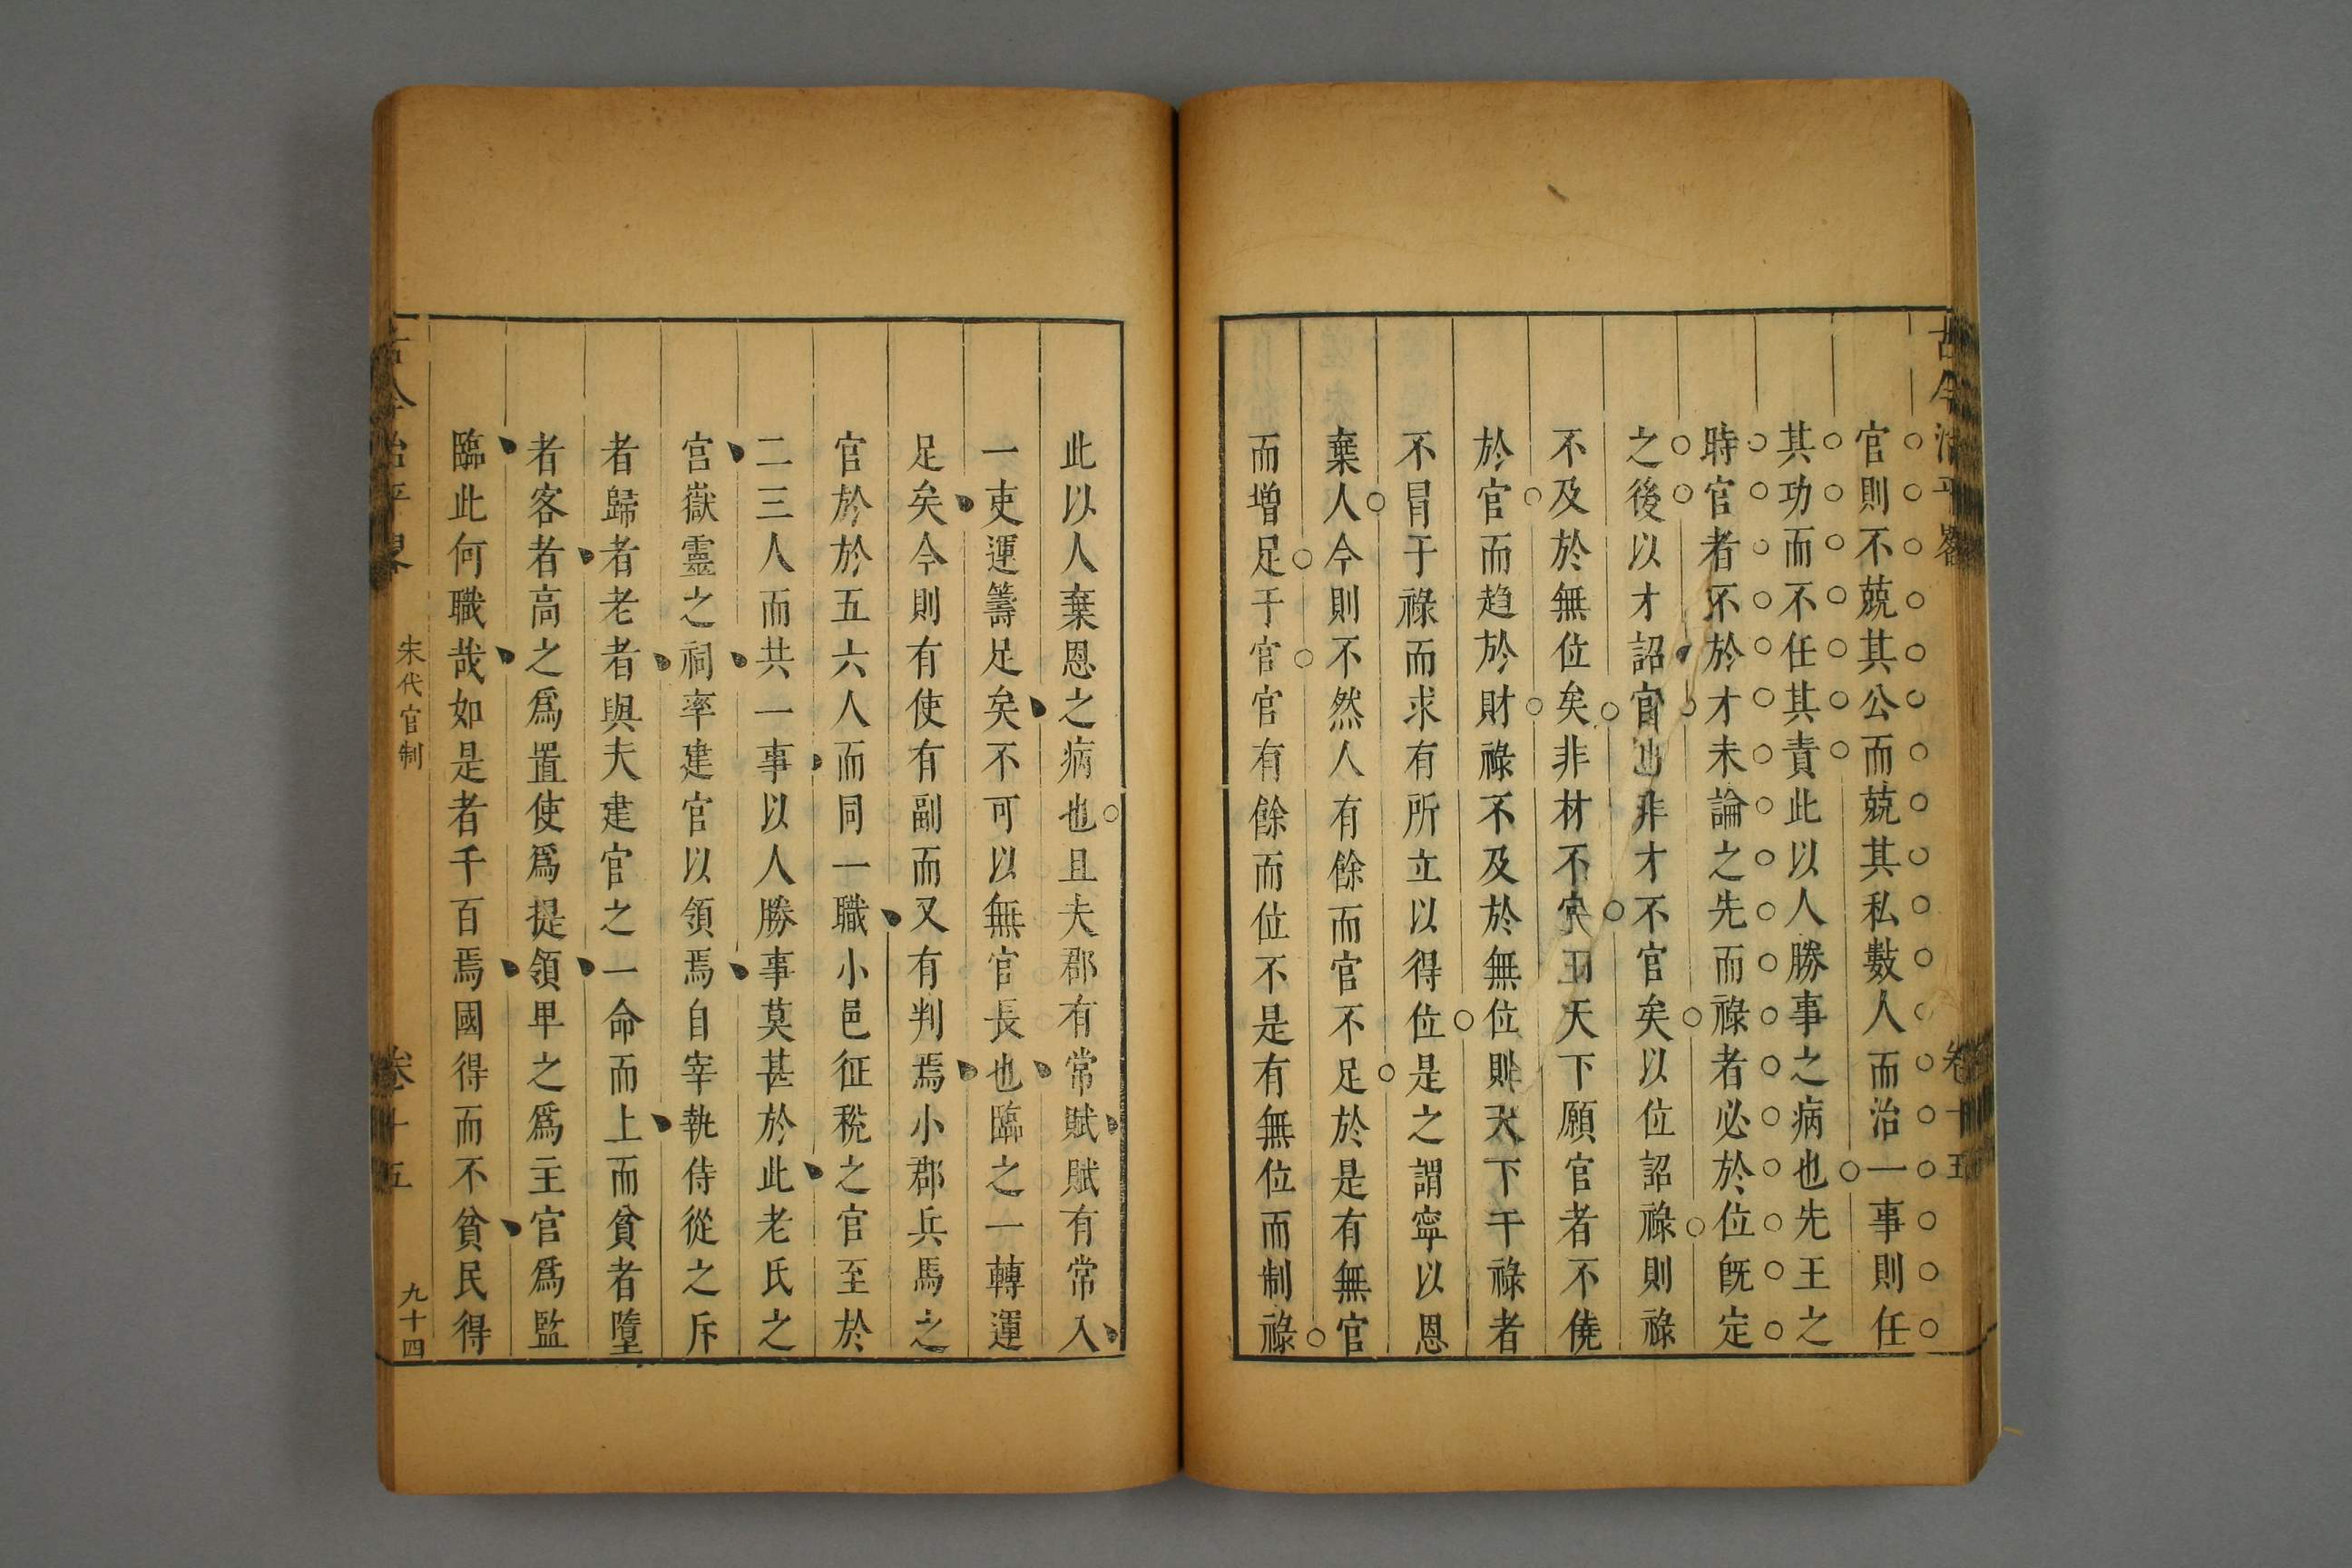 古今治平畧 卷十五
官則不兢其公而兢其私數人而治一事則任
其功而不任其責此以人勝事之病也先王之
時官者不於才未論之先而祿者必於位旣定
之後以才詔官也非才不官矣以位詔祿則祿
不及於無位矣非材不官天下願官者不僥
於官而趋於財祿不及於無位則天下干祿者
不冒于祿而求有所立以得位是之謂寧以恩
棄人今則不然人有餘而官不足於是有無官
而增足于官官有餘而位不足是有無位而制祿
此以人棄恩之病也且夫郡有常賦賦有常入
一吏運籌足矣不可以無官長也臨之一轉運
足矣今則有使有副而又有判焉小郡兵馬之
官於於五六人而同一職小邑征稅之官至於
二三人而共一事以人勝事莫甚於此老氏之
宮嶽靈之祠率建官以領焉自宰執侍從之斥
者歸者老者與夫建官之一命而上而貧者墮
者客者高之爲置使爲提領卑之爲主官爲監
臨此何職哉如是者千百焉國得而不貧民得
古今治平畧 宋代官制 卷十五 九十四